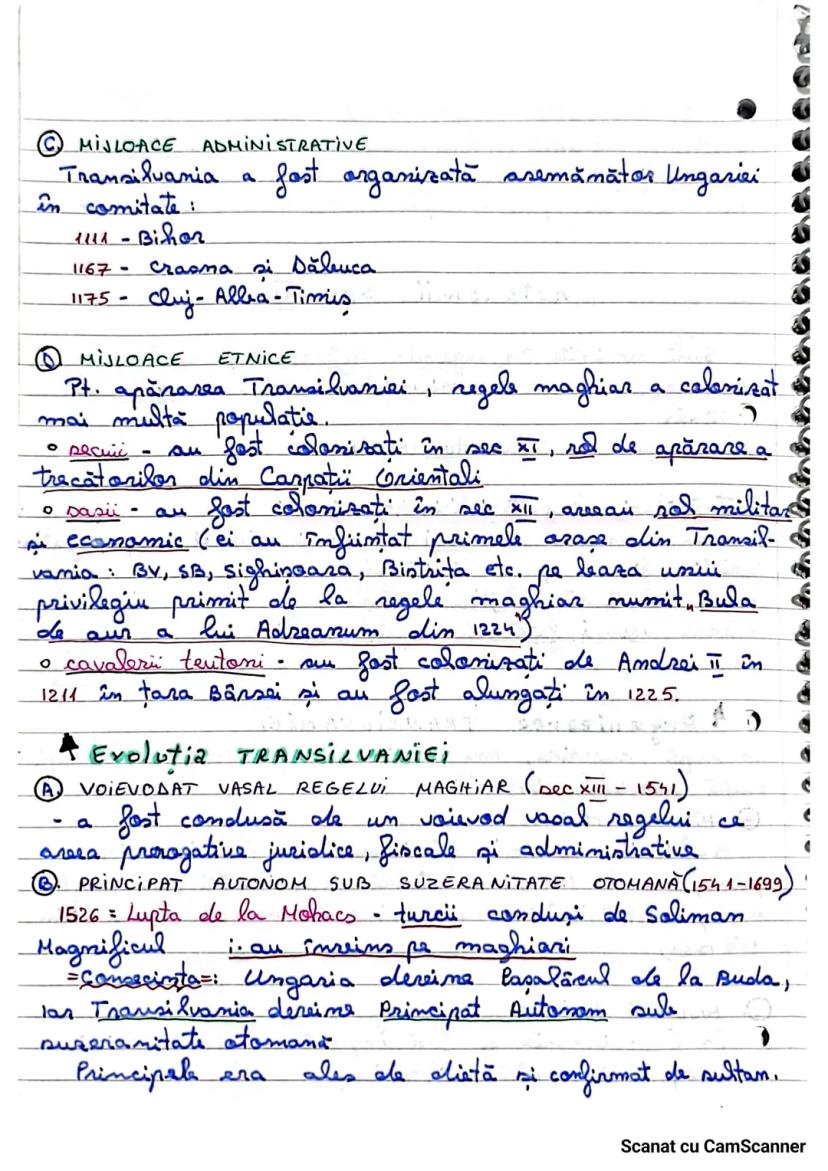 Ⓒ MIJLOACE ADMINISTRATIVE
Transilvania a fost organizată asemănător Ungariei
în comitate :
1111 - Bihor
1167 - Crasna și Dăbuca
1175 - Cluj - Alba - Timiș
Ⓓ MIJLOACE ETNICE
Pt. apărarea Transilvaniei , regele maghiar a colonizat
mai multă populație.
o secuii - au fost colonizați în sec XI , rol de apărare a
trecătorilor din Carpații Orientali
o sasii - au fost colonizați în sec XII , aveau rol militar
și economic (ei au înființat primele orașe din Transil-
vania : BV, SB, Sighișoara, Bistrița etc. pe baza unui
privilegiu primit de la regele maghiar numit „Bula
de aur a lui Adreanum din 1224")
o cavalerii teutoni - au fost colonizați de Andrei II în
1211 în țara Bârsei și au fost alungați în 1225.
Evoluția TRANSILVANIEI
Ⓐ VOIEVODAT VASAL REGELUI MAGHIAR (sec XIII - 1541)
- a fost condusă de un voievod vasal regelui ce
avea prerogative juridice, fiscale și administrative
Ⓑ. PRINCIPAT AUTONOM SUB SUZERANITATE OTOMANĂ (1541-1699)
1526 = Lupta de la Mohacs - turcii conduși de Soliman
Magnificul i-au învins pe maghiari
=Consecința=: Ungaria devine Pașalâcul de la Buda,
iar Transilvania devine Principat Autonom sub
suzeranitate otomană
Principele era ales de dietă și confirmat de sultan.
Scanat cu CamScanner